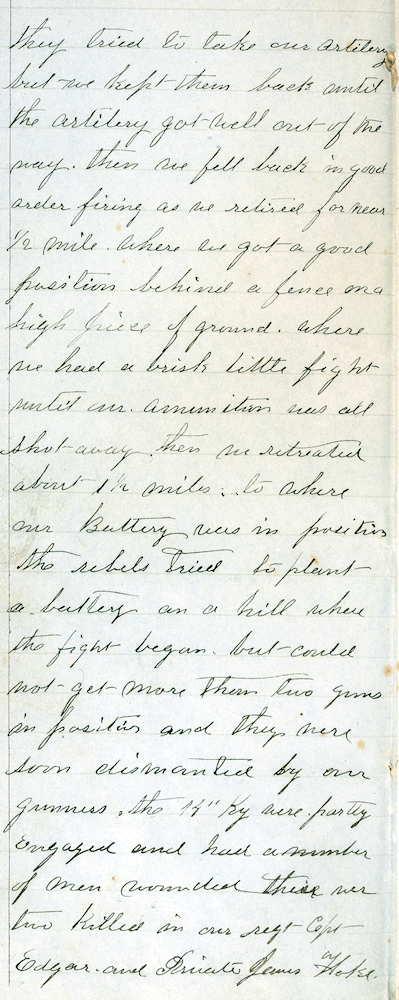 they tried to take our artilery
but we kept them back until
the artilery got well out of the
way. then we fell back in good
order firing as we retired for near
1/2 mile. where we got a good
position behind a fence on a
high piece of ground. where
we had a brisk little fight
until our amunition was all
shot away. then we retreated
about 1 1/2 miles. to where
our Battery was in position
the rebels tried to plant
a battery on a hill where
the fight began. but could
not get more them two guns
in position and they were
soon dismantled by our
gunness. the 14" Ky were partly
Engaged and had a number
of men wounded their wer
two killed in our regt Cept
Edgar. and Private James Hoke.